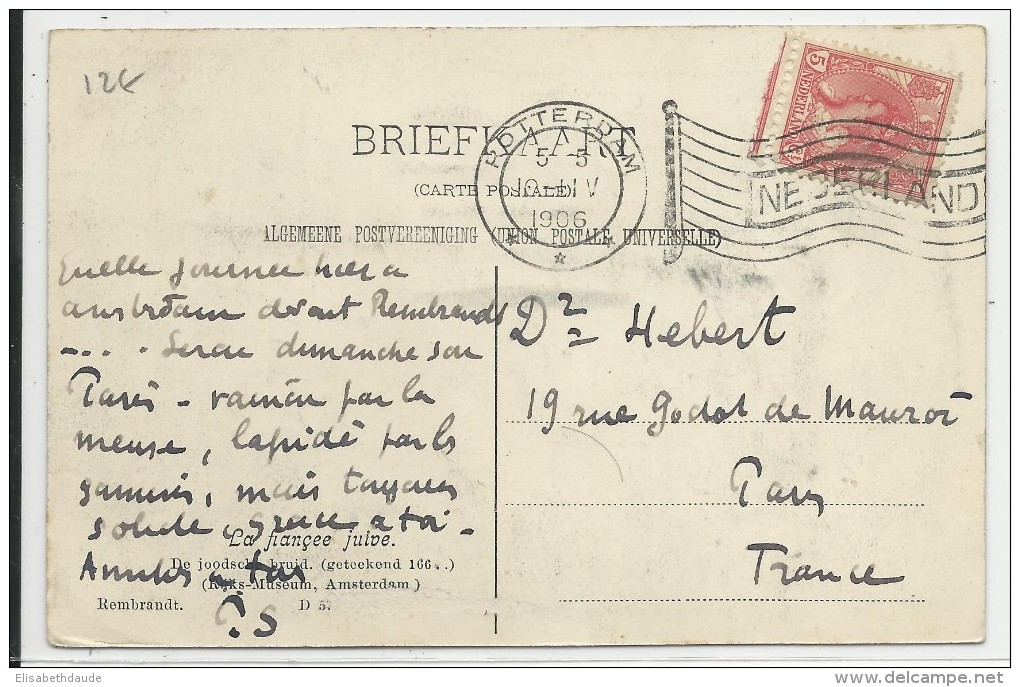 12€
BRIEFKAART
(CARTE POSTALE)
ALGEMEENE POSTVEREENIGING (UNION POSTALE UNIVERSELLE)
ROTTERDAM
5-5
1906
5
NEDERLAND
NEDERLAND
Quelle journée hier a
amsterdam devant Rembrandt
-... Serai dimanche soir
Paris -
par la
meuse, lapidé par les
gamins, mais toujours
solide, grace a toi -
Amitiés a toi
P.S
La fiançée juive.
De joodsche bruid. (geteekend 166..)
(Rijks-Museum, Amsterdam)
Rembrandt. D 5.
Dr Hebert
19 rue Godot de Mauroi
Paris
France
Elisabethdaude
delcampe.net